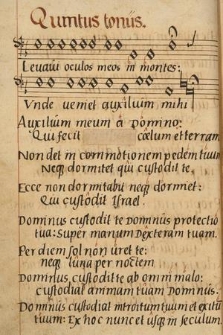 Quintus tonus.
Levavi oculos meos in montes:
Vnde veniet auxilium mihi
Auxilium meum a Domino:
Qui fecit cœlum et terram
Non det in commotionem pedem tuum
Neq dormitet qui custodit te.
Ecce non dormitabit neq dormiet:
Qui custodit Israel
Dominus custodit te Dominus protectio
tua: super manum dexteram tuam.
Per diem sol non uret te:
neq luna per noctem
Dominus custodit te ab omni malo:
custodiat animam tuam Dominus.
Dominus custodiat introitum tuum et exitū
tuum: Ex hoc nunc et usq in seculum.